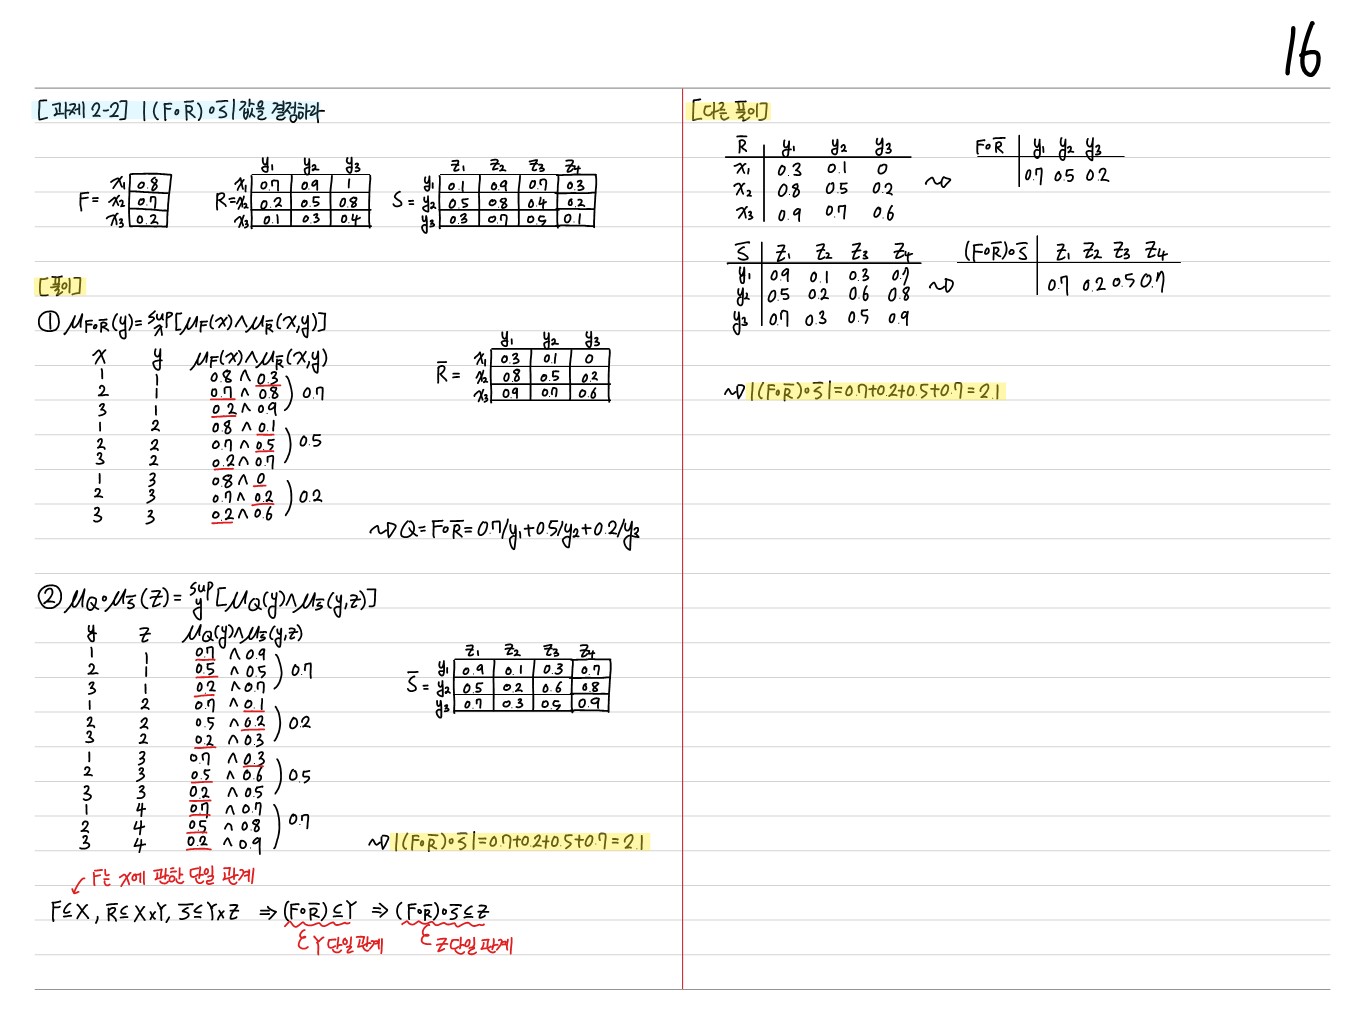 16
[과제 2-2] |(F∘R̄)∘S̄| 값을 결정하라
F=
x₁ 0.8
x₂ 0.7
x₃ 0.2
R=
y₁ y₂ y₃
x₁ 0.7 0.9 1
x₂ 0.2 0.5 0.8
x₃ 0.1 0.3 0.4
S=
z₁ z₂ z₃ z₄
y₁ 0.1 0.9 0.7 0.3
y₂ 0.5 0.8 0.4 0.2
y₃ 0.3 0.7 0.5 0.1
[풀이]
① μF∘R̄(y)= sup x [μF(x)∧μR̄(x,y)]
x y μF(x)∧μR̄(x,y)
1 1 0.8 ∧ 0.3
2 1 0.7 ∧ 0.8 ) 0.7
3 1 0.2 ∧ 0.9
1 2 0.8 ∧ 0.1
2 2 0.7 ∧ 0.5 ) 0.5
3 2 0.2 ∧ 0.7
1 3 0.8 ∧ 0
2 3 0.7 ∧ 0.2 ) 0.2
3 3 0.2 ∧ 0.6
R̄ =
y₁ y₂ y₃
x₁ 0.3 0.1 0
x₂ 0.8 0.5 0.2
x₃ 0.9 0.7 0.6
⇝ Q= F∘R̄= 0.7/y₁+0.5/y₂+0.2/y₃
② μQ∘μS̄(z)= sup y [μQ(y)∧μS̄(y,z)]
y z μQ(y)∧μS̄(y,z)
1 1 0.7 ∧ 0.9
2 1 0.5 ∧ 0.5 ) 0.7
3 1 0.2 ∧ 0.7
1 2 0.7 ∧ 0.1
2 2 0.5 ∧ 0.2 ) 0.2
3 2 0.2 ∧ 0.3
1 3 0.7 ∧ 0.3
2 3 0.5 ∧ 0.6 ) 0.5
3 3 0.2 ∧ 0.5
1 4 0.7 ∧ 0.7
2 4 0.5 ∧ 0.8 ) 0.7
3 4 0.2 ∧ 0.9
S̄ =
z₁ z₂ z₃ z₄
y₁ 0.9 0.1 0.3 0.7
y₂ 0.5 0.2 0.6 0.8
y₃ 0.7 0.3 0.5 0.9
⇝ |(F∘R̄)∘S̄|=0.7+0.2+0.5+0.7=2.1
F는 x에 관한 단일 관계
F⊆X, R̄⊆X×Y, S̄⊆Y×Z ⇒ (F∘R̄)⊆Y ⇒ (F∘R̄)∘S̄⊆Z
ε Y 단일관계 ε Z 단일관계
[다른 풀이]
R̄ y₁ y₂ y₃
x₁ 0.3 0.1 0
x₂ 0.8 0.5 0.2
x₃ 0.9 0.7 0.6
⇝
F∘R̄ y₁ y₂ y₃
0.7 0.5 0.2
S̄ z₁ z₂ z₃ z₄
y₁ 0.9 0.1 0.3 0.7
y₂ 0.5 0.2 0.6 0.8
y₃ 0.7 0.3 0.5 0.9
⇝
(F∘R̄)∘S̄ z₁ z₂ z₃ z₄
0.7 0.2 0.5 0.7
⇝ |(F∘R̄)∘S̄|=0.7+0.2+0.5+0.7=2.1